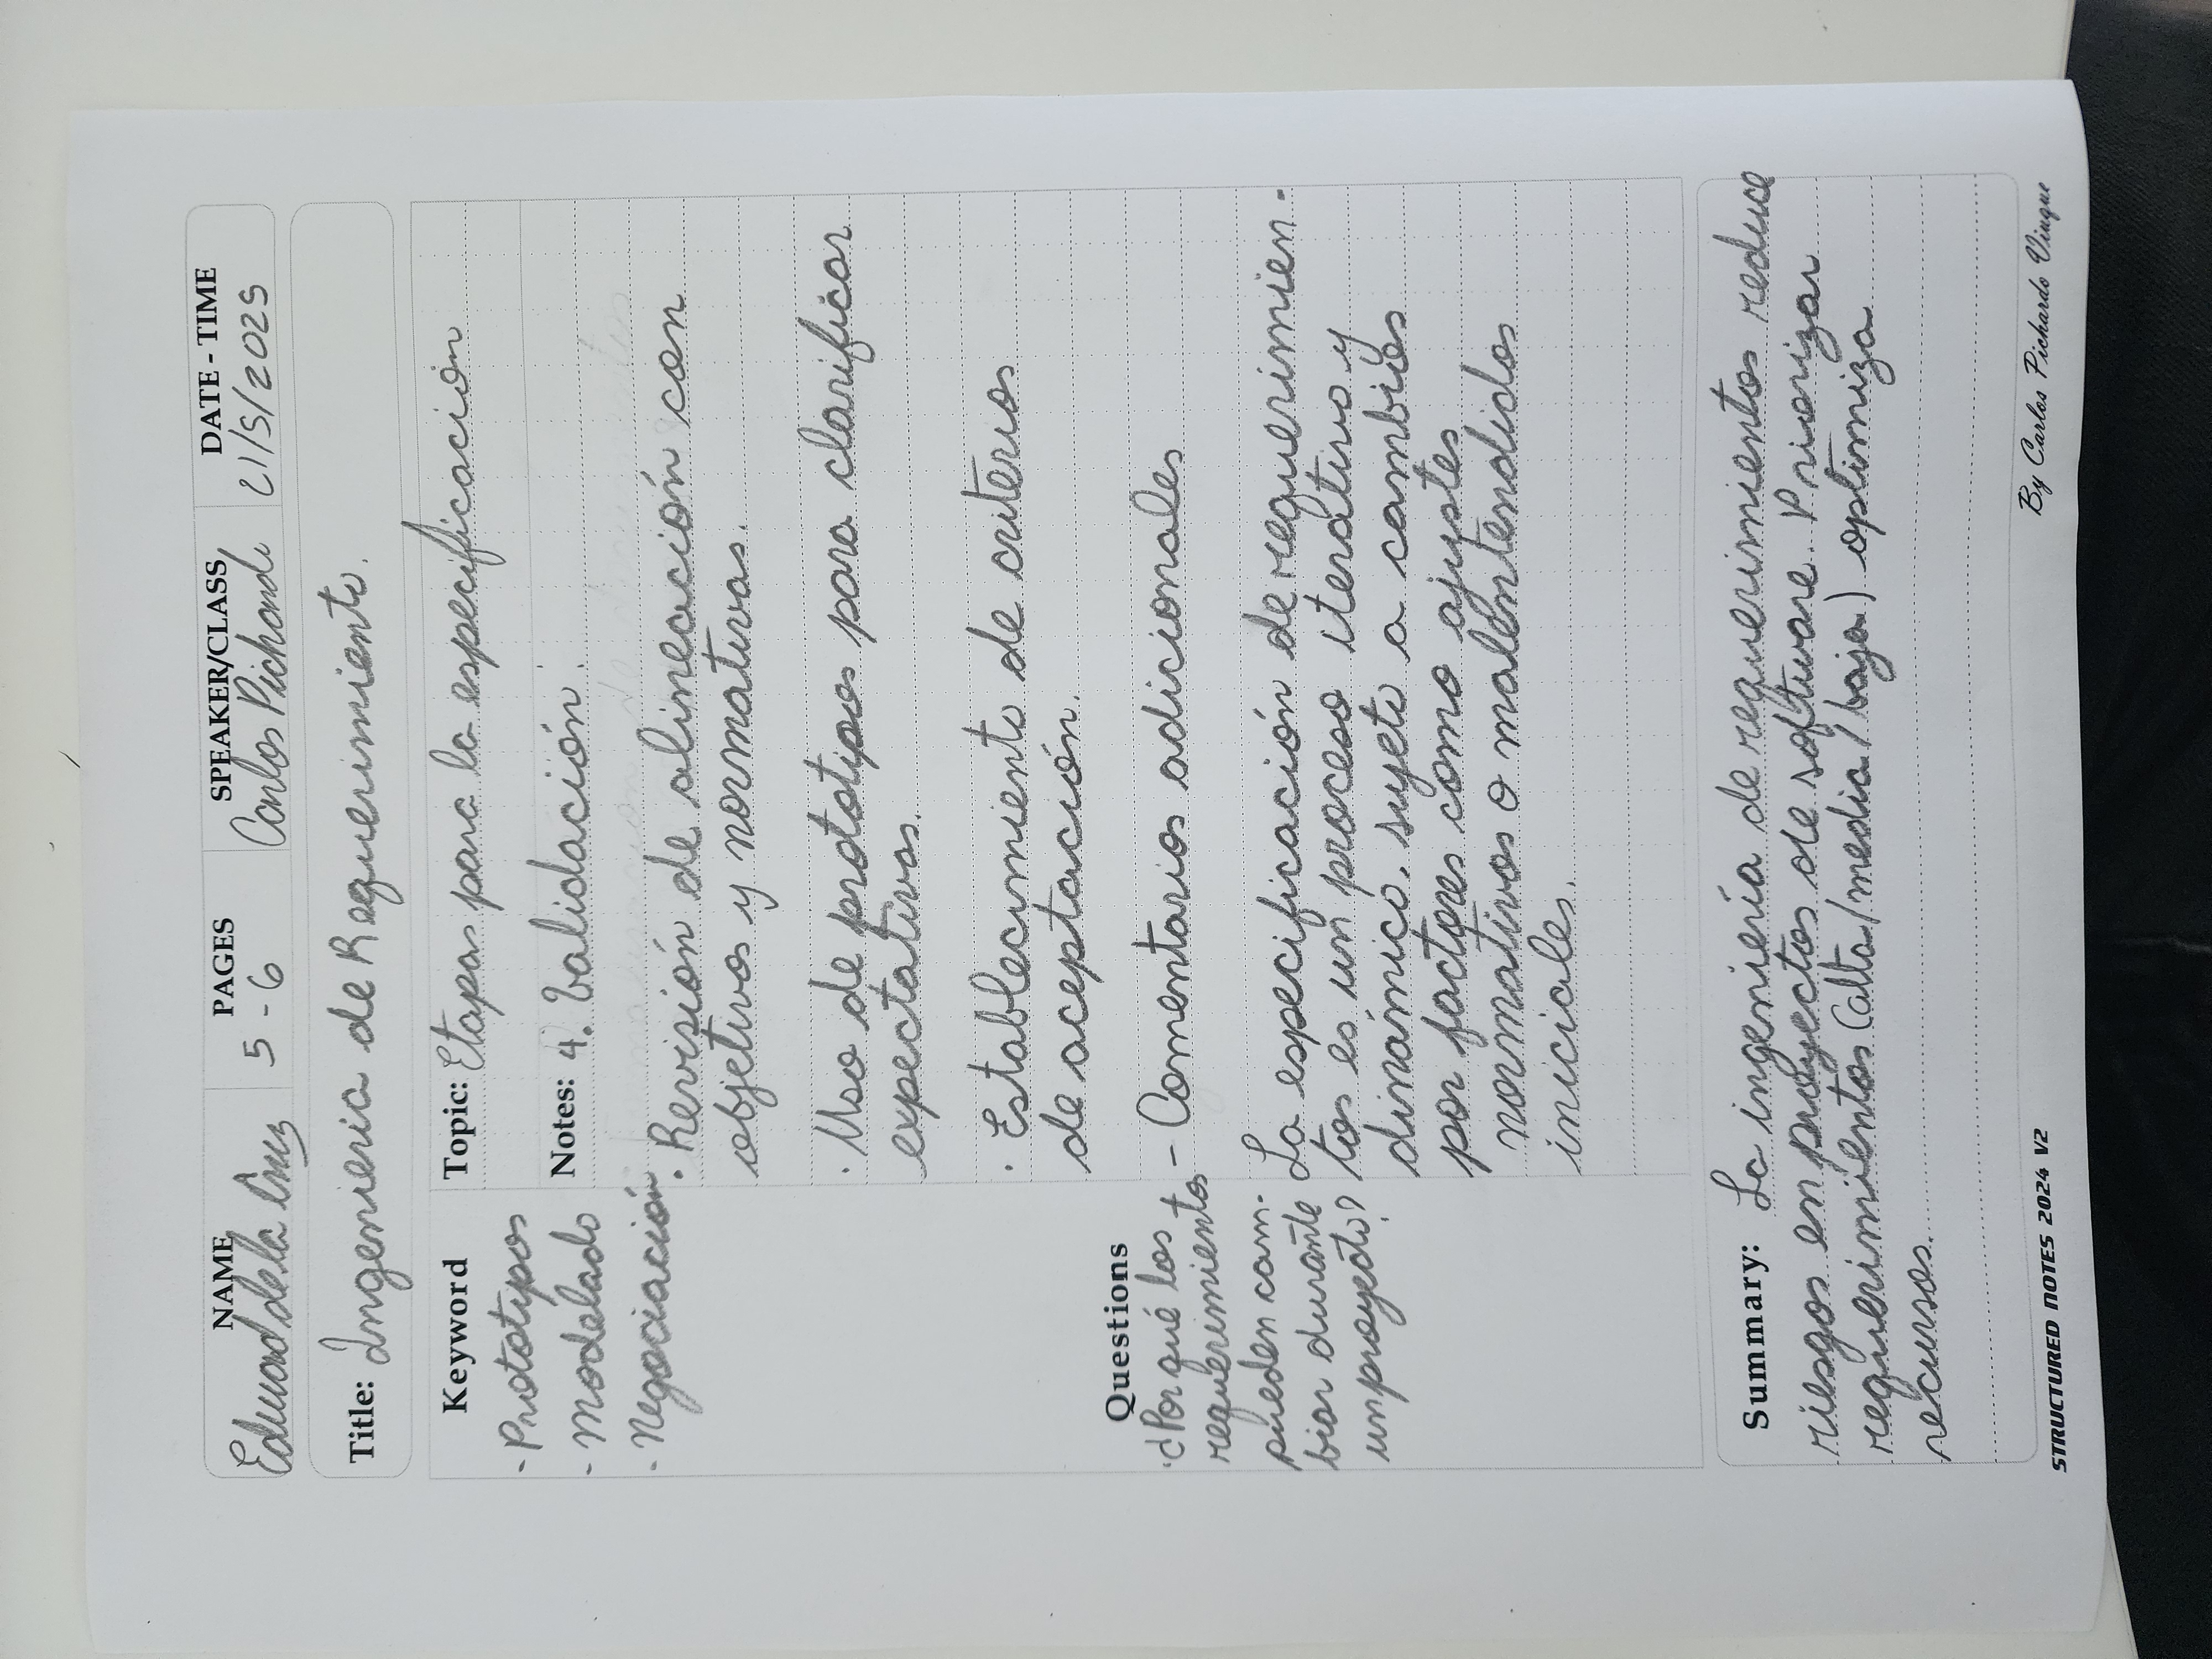 NAME PAGES SPEAKER/CLASS DATE - TIME
Eduard de la Cruz 5 - 6 Carlos Pichardo 21/5/2025
Title: Ingenieria de Requerimiento.
Keyword
- Prototipos
- Modelado
- Negociación
Topic: Etapas para la especificación
Notes: 4. Validación:
· Revisión de alineación con
objetivos y normativas.
· Uso de prototipos para clarificar
expectativas.
· Establecimiento de criterios
de aceptación.
- Comentarios adicionales
La especificación de requerimien-
tos es un proceso iterativo y
dinámico. sujeto a cambios
por factores como ajustes
normativos o malentendidos
iniciales.
Questions
· ¿Por qué los
requerimientos
pueden cam-
biar durante
un proyecto?
Summary: La ingeniería de requerimientos reduce
riesgos en proyectos de software. Priorizar
requerimientos (alta/media/baja) optimiza
recursos.
STRUCTURED NOTES 2024 V2 By Carlos Pichardo Viuque